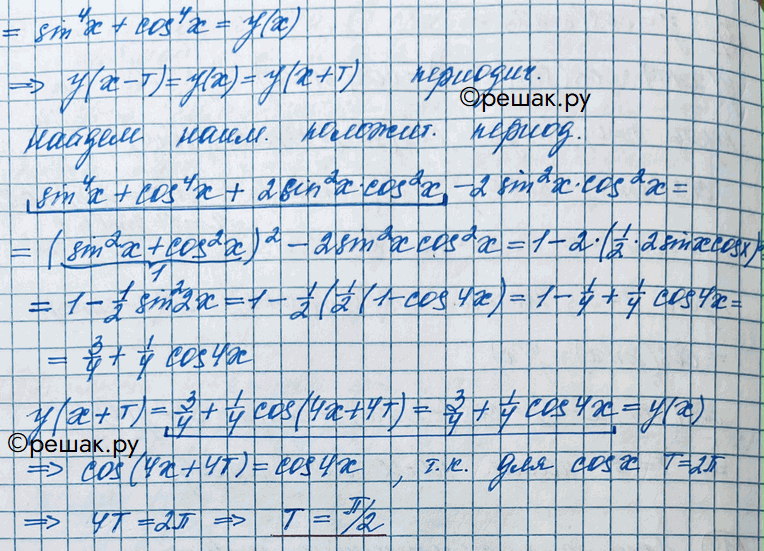 = sin⁴x + cos⁴x = y(x)
⇒ y(x-T) = y(x) = y(x+T) периодич.
©решак.ру
найдем наим. положит. период.
sin⁴x + cos⁴x + 2sin²x·cos²x - 2 sin²x·cos²x =
= (sin²x + cos²x)² - 2sin²xcos²x = 1 - 2·(1/2·2sinxcosx)²=
1
= 1 - 1/2 sin²2x = 1 - 1/2 (1/2 (1-cos4x) = 1 - 1/4 + 1/4 cos4x =
= 3/4 + 1/4 cos4x
y(x+T) = 3/4 + 1/4 cos(4x+4T) = 3/4 + 1/4 cos4x = y(x)
©решак.ру
⇒ cos(4x+4T) = cos4x , т.к. для cosx T=2π
⇒ 4T = 2π ⇒ T = π/2